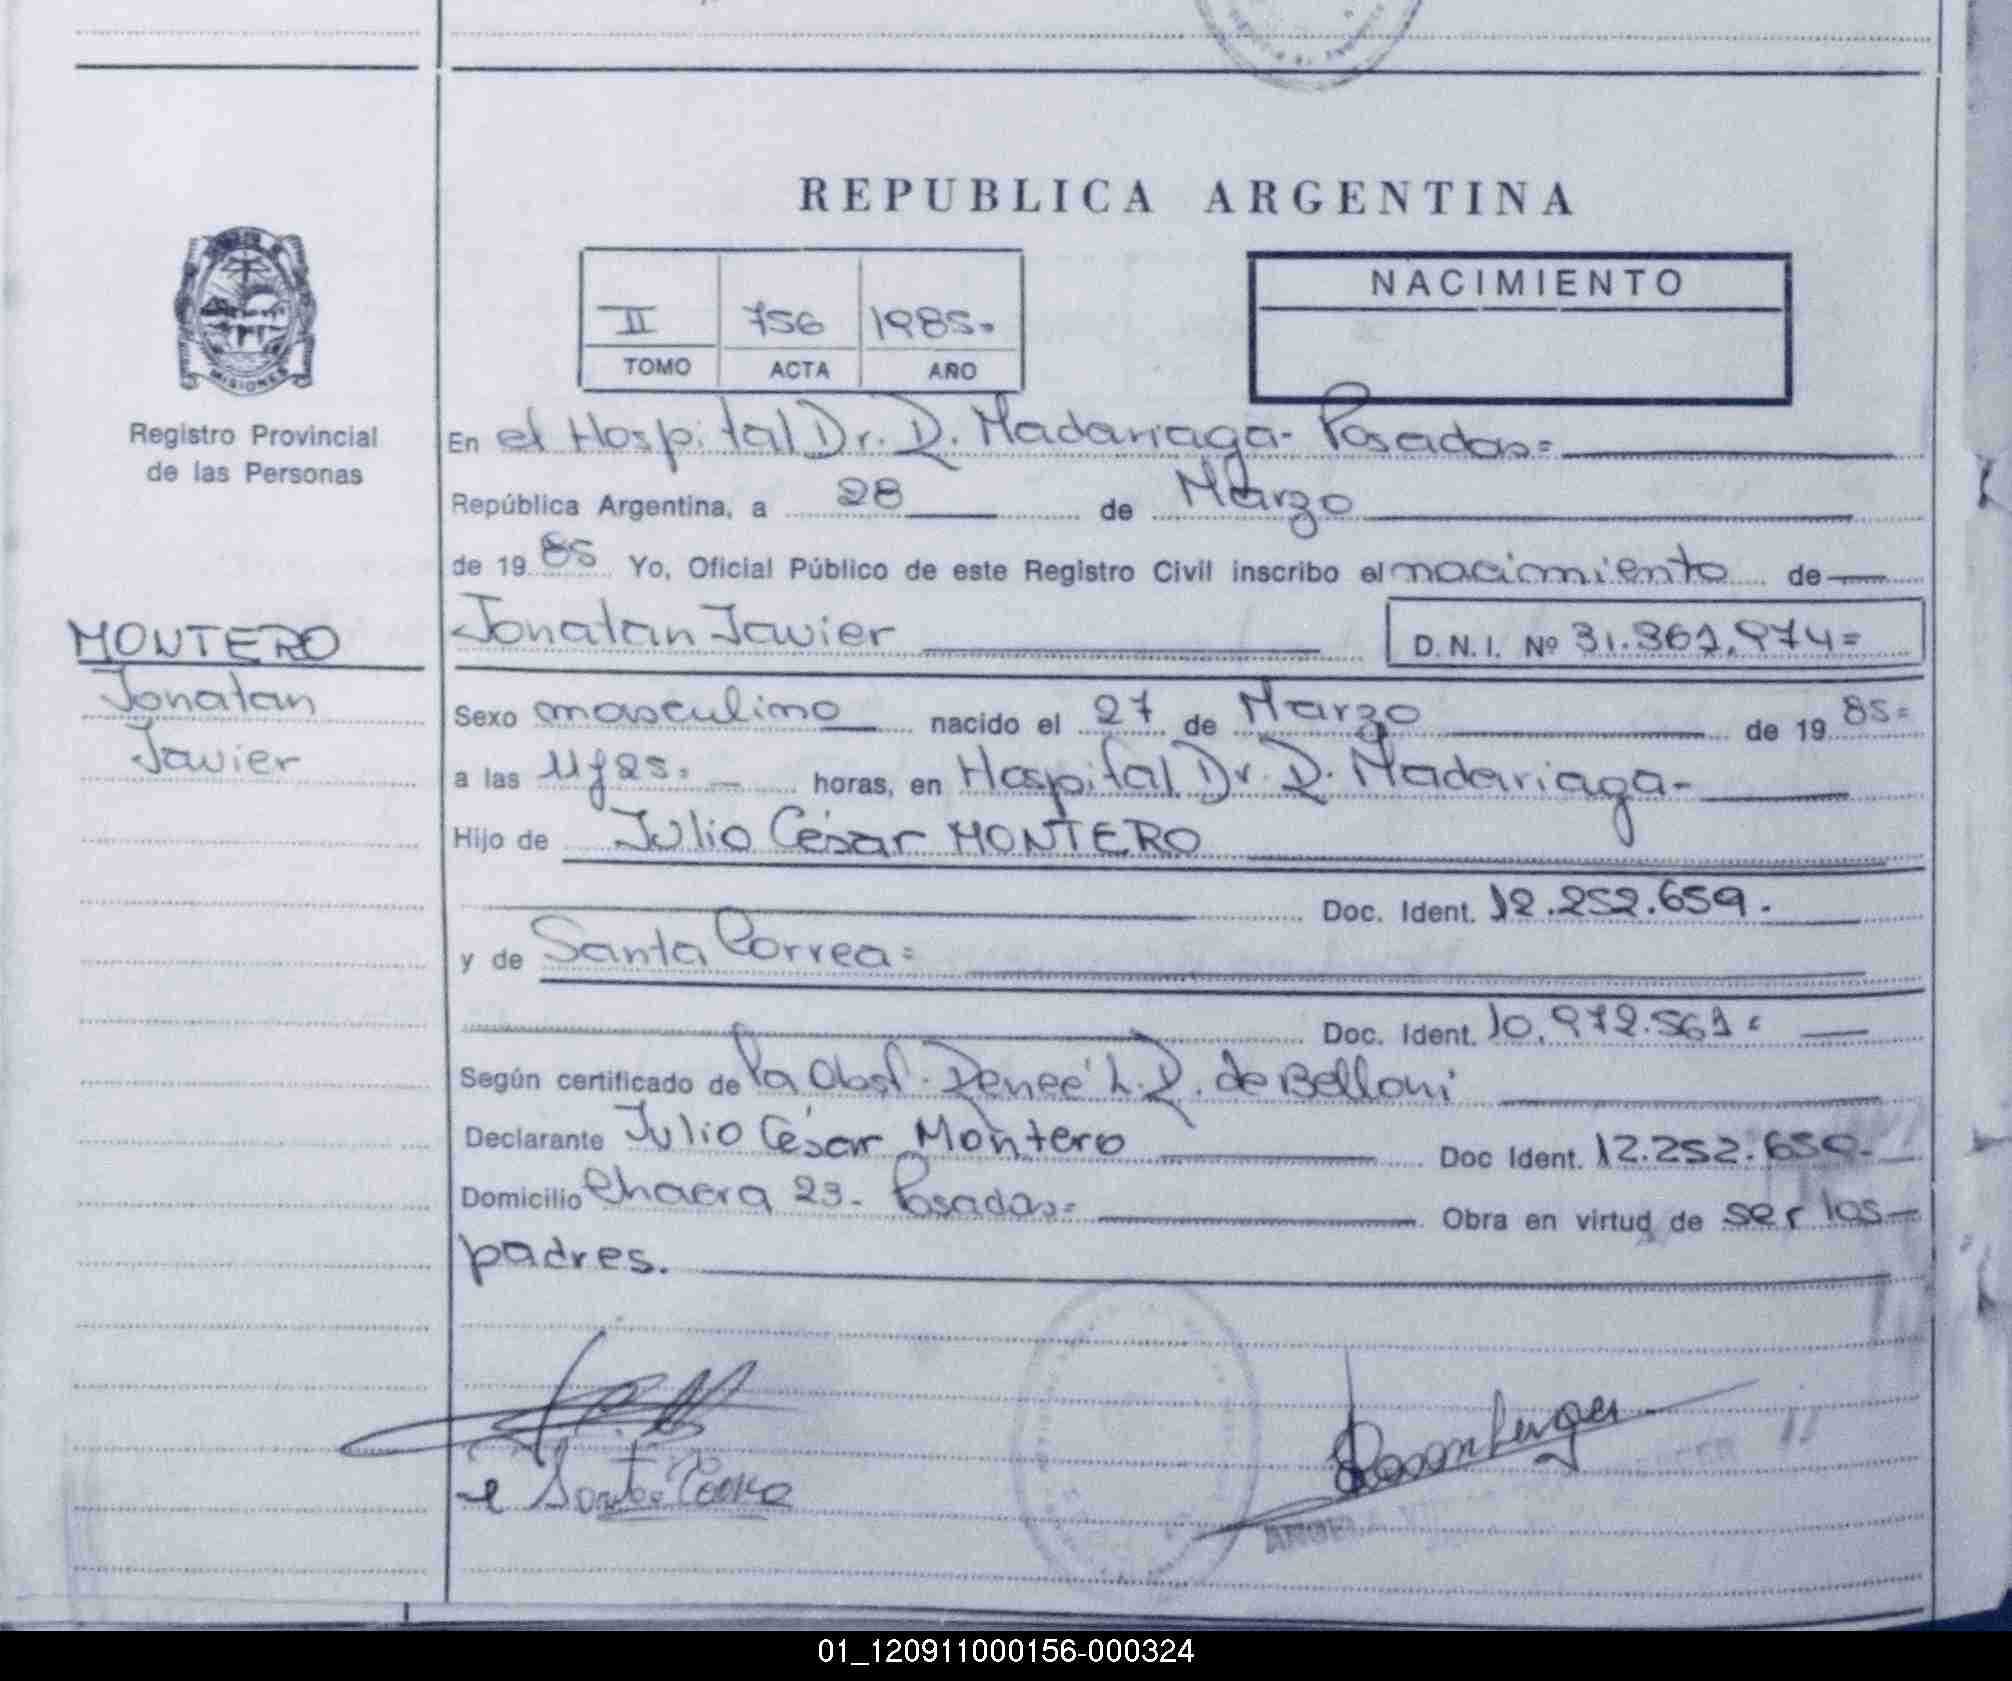 REPUBLICA ARGENTINA
MISIONES
Registro Provincial
de las Personas
II 756 1985.
TOMO ACTA AÑO
NACIMIENTO
En el Hospital Dr. R. Madariaga- Posadas=
República Argentina, a 28 de Marzo
de 19 85 Yo, Oficial Público de este Registro Civil inscribo el nacimiento de
MONTERO
Jonatan
Javier
Jonatan Javier D.N.I. Nº 31.361.974=
Sexo masculino nacido el 27 de Marzo de 19 85=
a las 11y25. horas, en Hospital Dr. R. Madariaga-
Hijo de Julio César MONTERO
Doc. Ident. 12.252.659.
y de Santa Correa=
Doc. Ident. 10.972.561=
Según certificado de la Obst. Reneé L. R. de Belloni
Declarante Julio César Montero Doc Ident. 12.252.659.
Domicilio Chacra 23- Posadas= Obra en virtud de ser los
padres.
Santa Correa
ANGELA
01_120911000156-000324